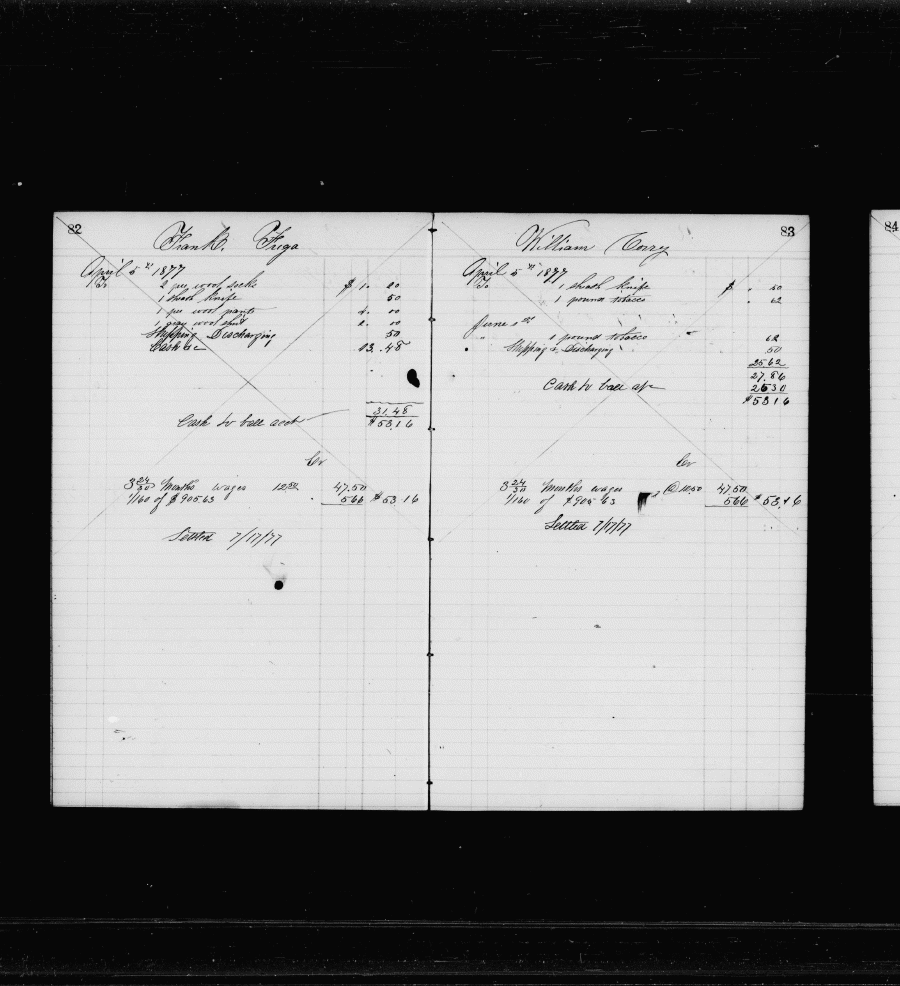 82
Frank Frega
April 5th 1877
To 2 prs wool socks $ 1. 00
1 sheath knife 50
1 pr wool pants 4. 00
1 gray wool shirt 2. 00
Shipping Discharging 50
Cash &c 13. 48
31.48
Cash to ball acct $53.16
Cr
3 24/30 Months wages 12.50 47.50
1/160 of $905 63 566 $53 16
Settled 7/17/77
83
William Corry
April 5th 1877
To 1 sheath knife $ . 50
1 pound tobacco . 62
June
" 1 pound tobacco 62
Shipping & Discharging 50
2562
27.86
Cash to ball a/c 2530
$5316
Cr
3 24/30 Months wages @ 12.50 47.50
1/160 of $905 63 566 $53.16
Settled 7/17/77
84